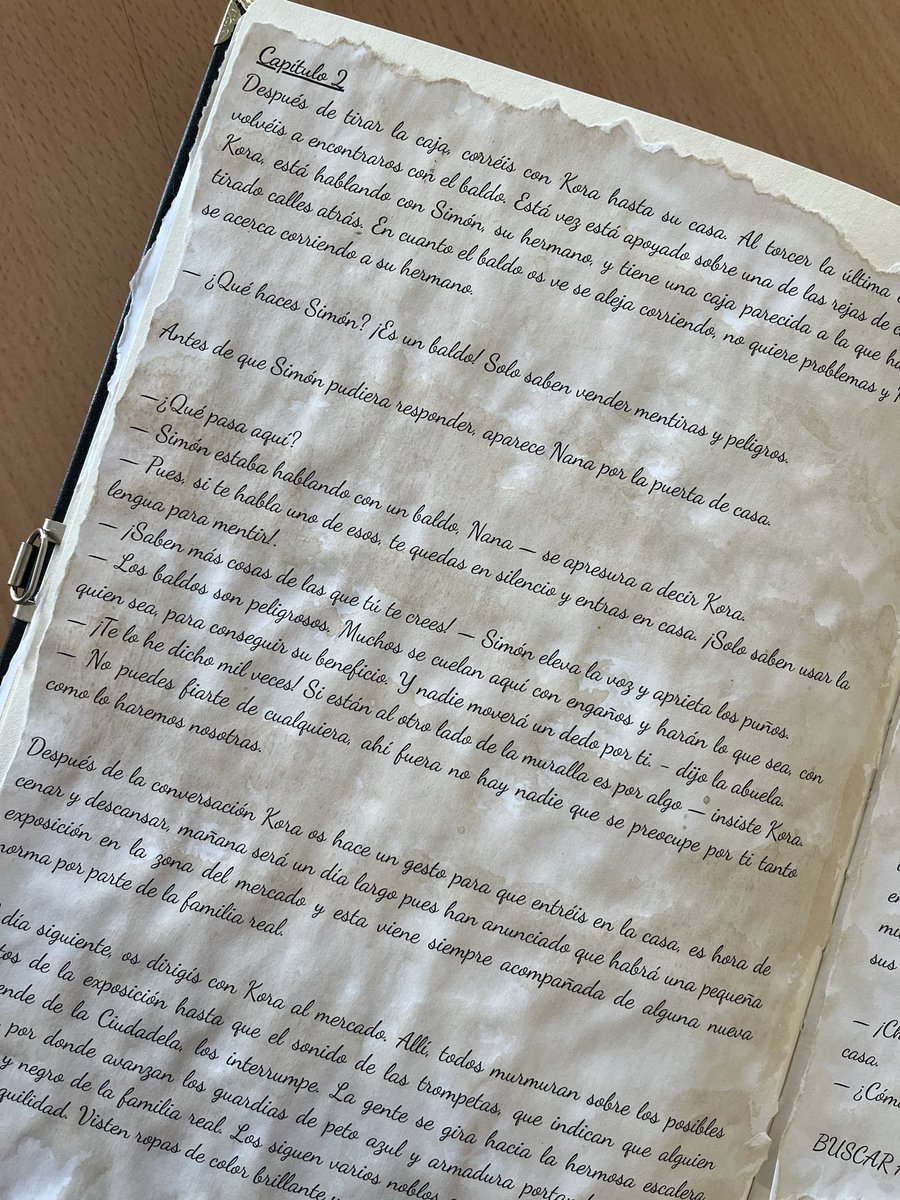 Capítulo 2
Después de tirar la caja, corréis con Kora hasta su casa. Al torcer la última
volvéis a encontraros con el baldo. Está vez está apoyado sobre una de las rejas de
Kora, está hablando con Simón, su hermano, y tiene una caja parecida a la que
tirado calles atrás. En cuanto el baldo os ve se aleja corriendo, no quiere problemas y
se acerca corriendo a su hermano.
— ¿Qué haces Simón? ¡Es un baldo! Solo saben vender mentiras y peligros.
Antes de que Simón pudiera responder, aparece Nana por la puerta de casa.
—¿Qué pasa aquí?
— Simón estaba hablando con un baldo, Nana — se apresura a decir Kora.
— Pues, si te habla uno de esos, te quedas en silencio y entras en casa. ¡Solo saben usar la
lengua para mentir!.
— ¡Saben más cosas de las que tú te crees! — Simón eleva la voz y aprieta los puños.
— Los baldos son peligrosos. Muchos se cuelan aquí con engaños y harán lo que sea, con
quien sea, para conseguir su beneficio. Y nadie moverá un dedo por ti. – dijo la abuela.
— ¡Te lo he dicho mil veces! Si están al otro lado de la muralla es por algo — insiste Kora.
— No puedes fiarte de cualquiera, ahí fuera no hay nadie que se preocupe por ti tanto
como lo haremos nosotras.
Después de la conversación Kora os hace un gesto para que entréis en la casa, es hora de
cenar y descansar, mañana será un día largo pues han anunciado que habrá una pequeña
exposición en la zona del mercado y esta viene siempre acompañada de alguna nueva
norma por parte de la familia real.
día siguiente, os dirigís con Kora al mercado. Allí, todos murmuran sobre los posibles
de la exposición hasta que el sonido de las trompetas, que indican que alguien
de la Ciudadela, los interrumpe. La gente se gira hacia la hermosa escalera
por donde avanzan los guardias de peto azul y armadura
y negro de la familia real. Los siguen varios
Visten ropas de color brillante
sus
— ¡Ch
casa.
— ¿Cóm
BUSCAR